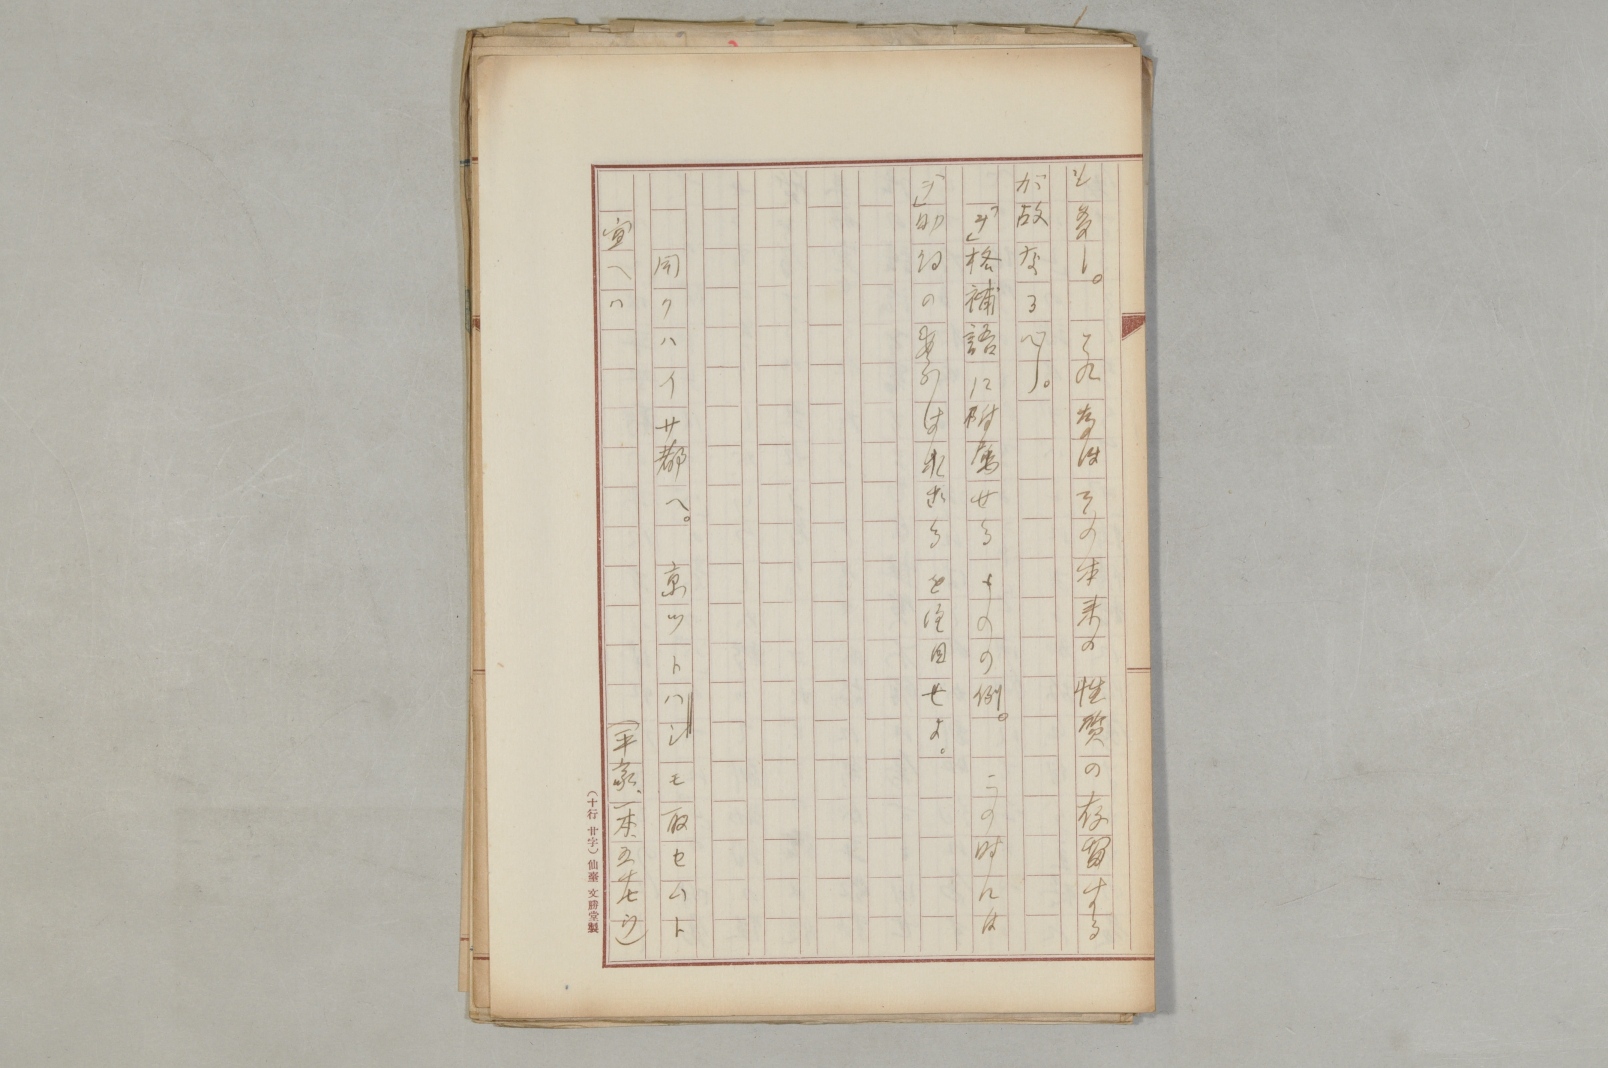 と多し。これ蓋はその本来の性質の存留する
が故なるべし。
「ぞ」格補語に附属せるものの例。この時には
「ぞ」助詞の
は来さるを注目せよ。
同クハイサ都ヘ。京ツトハシモ取セムト
宣ヘハ
(平家、一本、五十七ウ)
(十行 廿字) 仙臺 文勝堂製